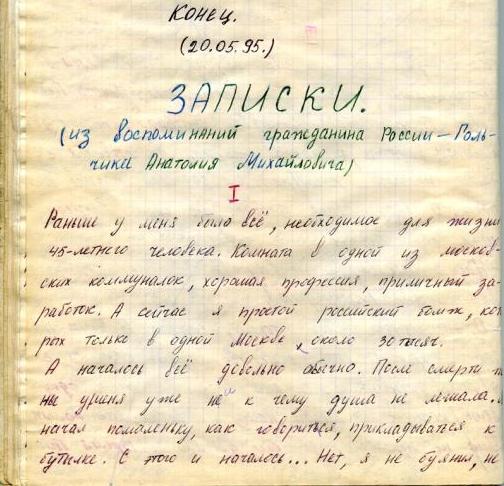 Конец.
(20.05.95.)
ЗАПИСКИ.
(из воспоминаний гражданина России — Голь-
чика Анатолия Михайловича)
I
Раньше у меня было всё, необходимое для жизни
45-летнего человека. Комната в одной из москов-
ских коммуналок, хорошая профессия, приличный за-
работок. А сейчас я простой российский бомж, кот
рых только в одной Москве, около 30 тысяч.
А началось всё довольно обычно. После смерти
ны у меня уже ни к чему душа не лежала.
начал помаленьку, как говориться, прикладываться к
бутылке. С этого и началось... Нет, я не буянил, не